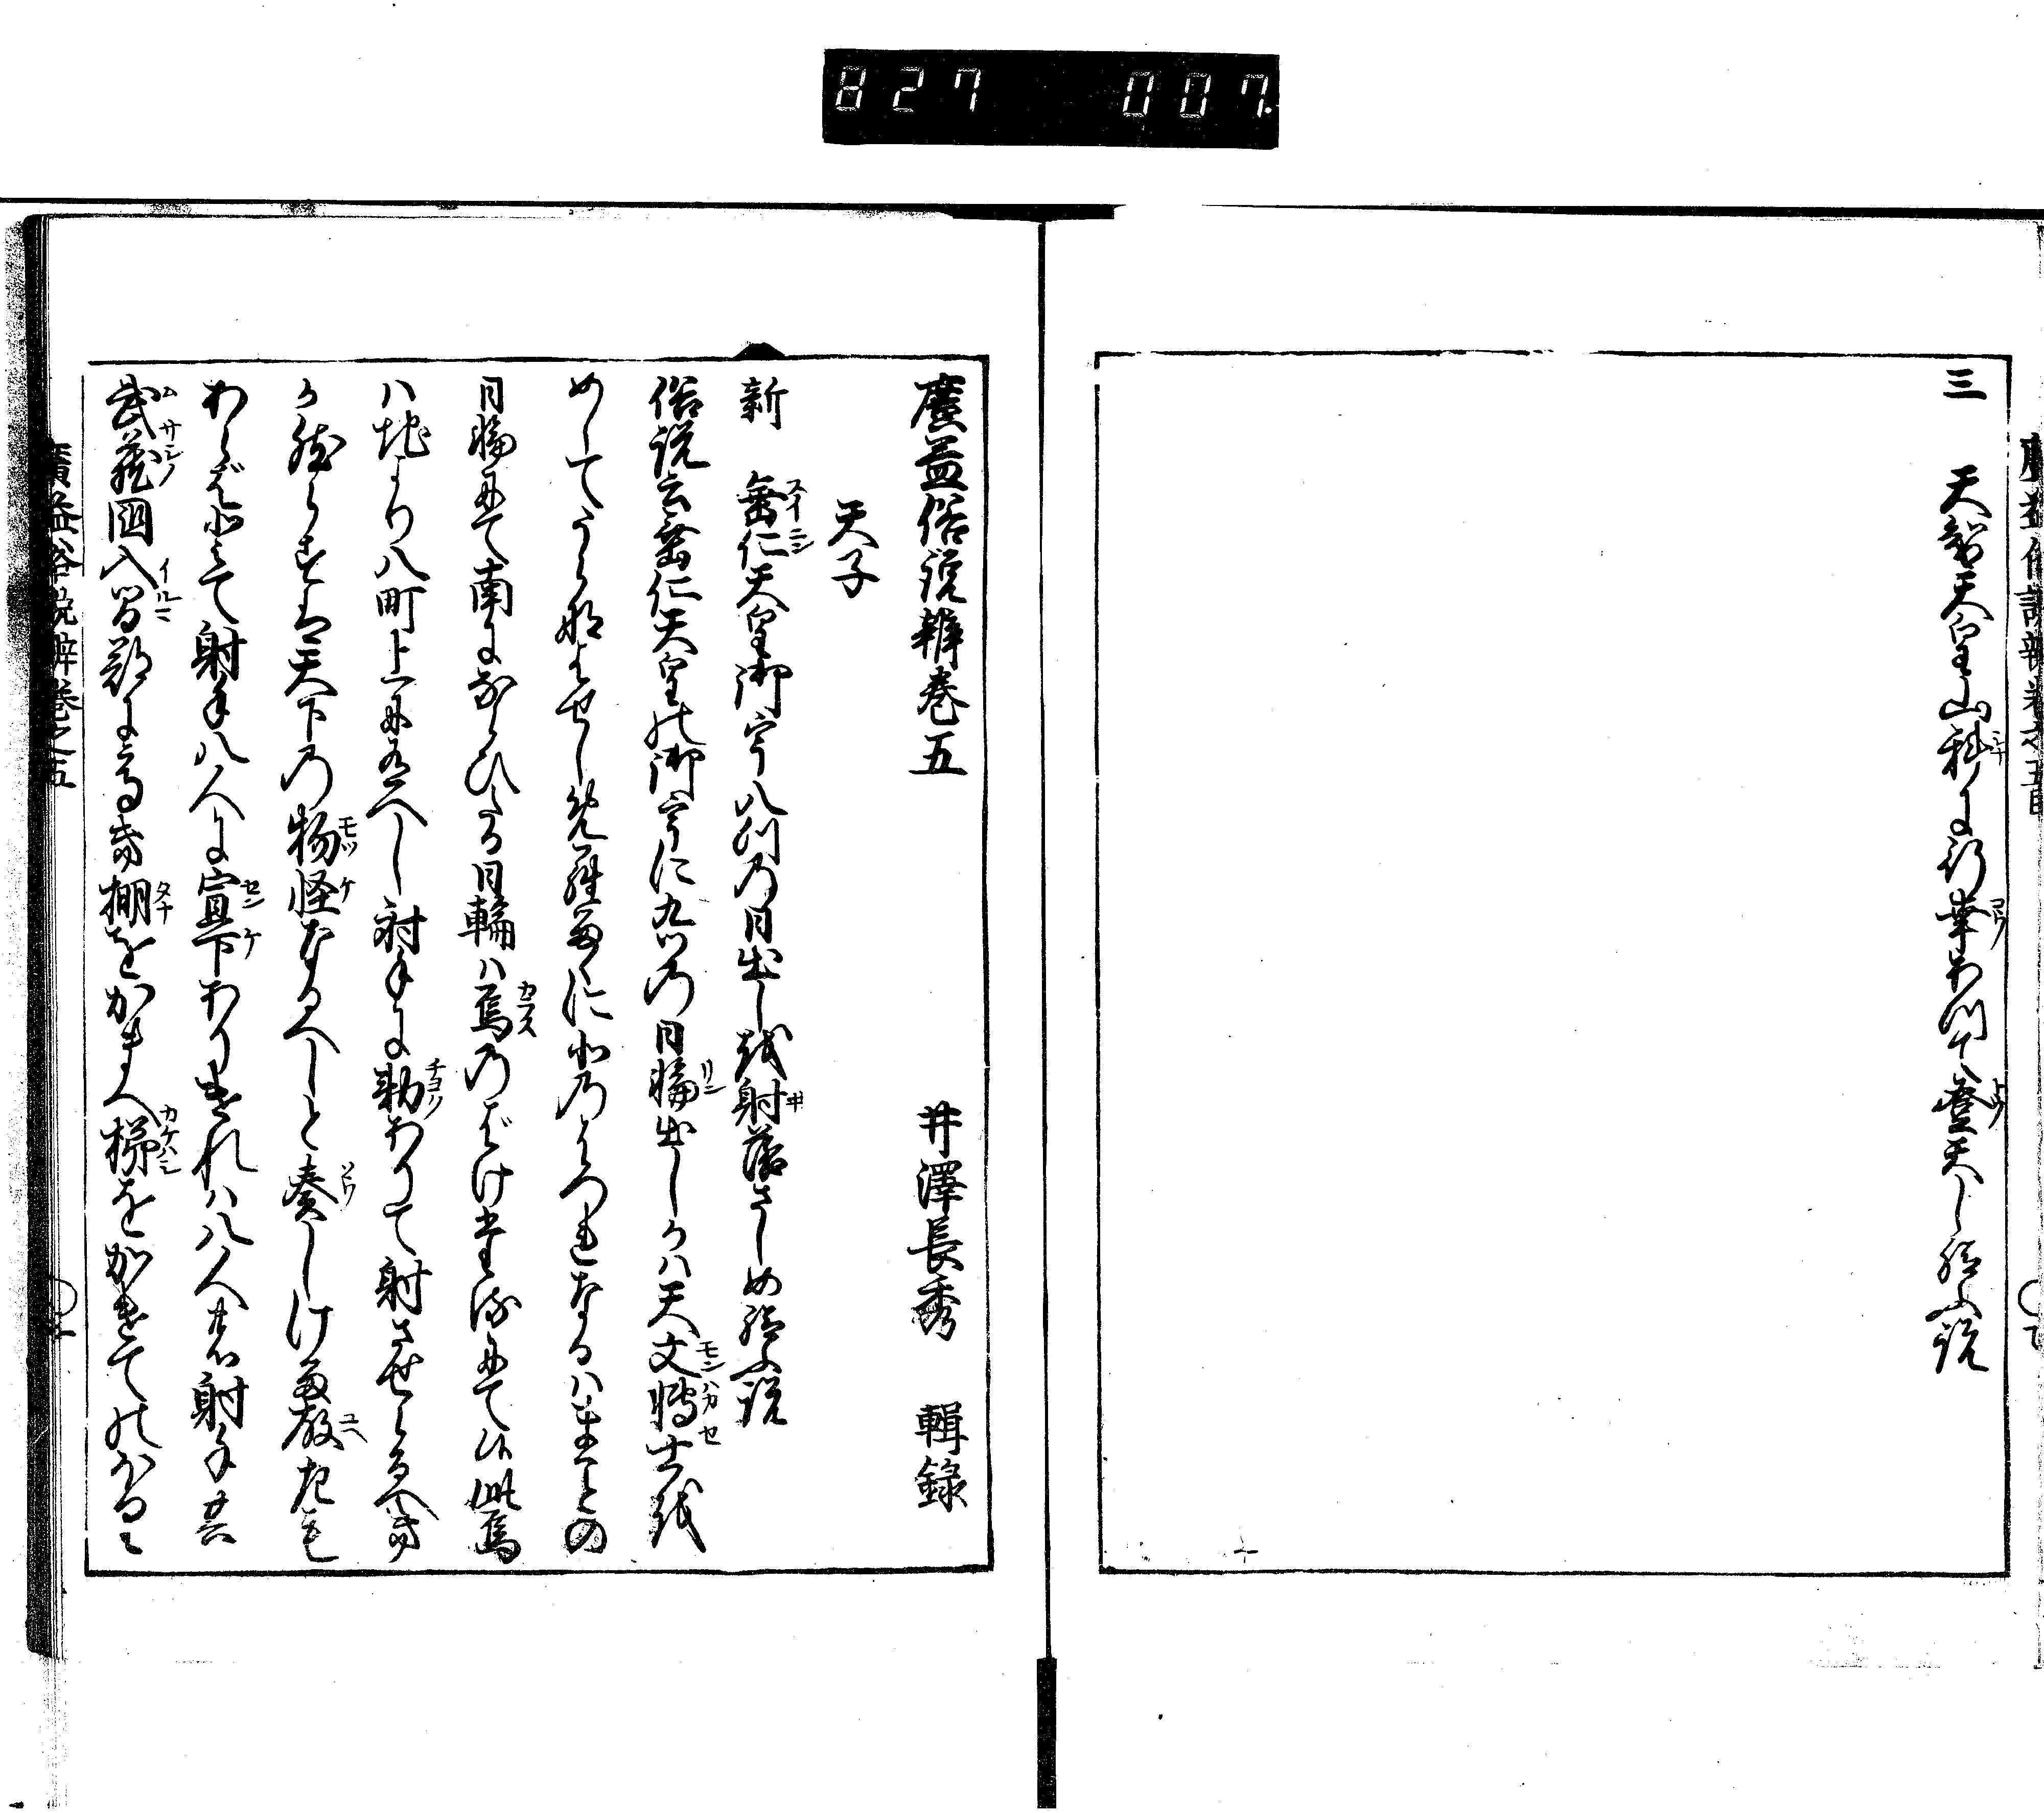 827 007
三 天智天皇山科に行幸あつて登天し給ふ説
廣益俗説辨巻五 井澤長秀 輯録
天子
新 垂仁天皇御宇八つの日出しを射落さしめ給ふ説
俗説云垂仁天皇の御宇に九つの日輪出しかハ天文博士を
めしてうらなはせ
日輪にて南にならひたる日輪ハ烏のばけたるにて候此烏
ハ地より八町上にあるへし射手に勅ありて射させらるへき
か然らすは天下の物怪なるへしと奏しけ
あらばとて射手八人に宣下ありけれハ八人の射手共
武蔵國入間郡に高き棚をかまへ梯をかけてのほる
廣益俗説辨巻之五